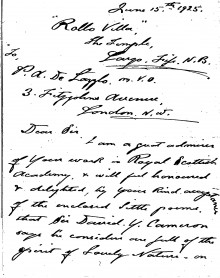 June 15th 1925.
"Rollo Villa"
The Temple,
Largo, Fife, N.B.
To,
P. A. De Laszlo, M.V.O.
3. Fitzjohns Avenue,
London. N.W.
Dear Sir
I am a great admirer
of your work in Royal Scottish
Academy, & will feel honoured
& delighted, by your kind acceptance
of the enclosed little poems,
that Sir David. Y. Cameron
says he considers are full of the
spirit of Lovely Nature - on